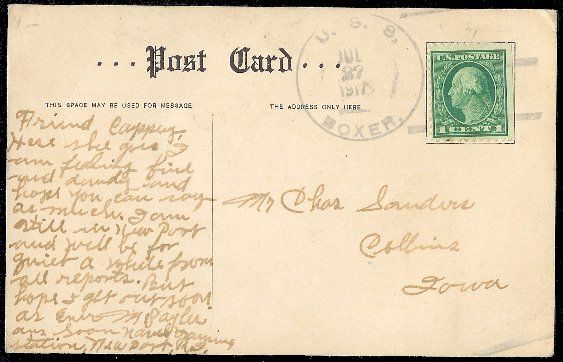 U. S. S.
JUL
27
1917
BOXER.
U.S. POSTAGE
1 CENT 1
... Post Card ...
THIS SPACE MAY BE USED FOR MESSAGE
THE ADDRESS ONLY HERE
Friend Cappey
Here she goes I
am feeling fine
and dandy and
hope you can say
as much. I am
still in New Port
and will be for
quiet a while from
all reports. But
hope I get out soon
as Ever
ans Soon Naval Training
station, New Port, R.I.
Mr Chas Sanders
Collins
Iowa